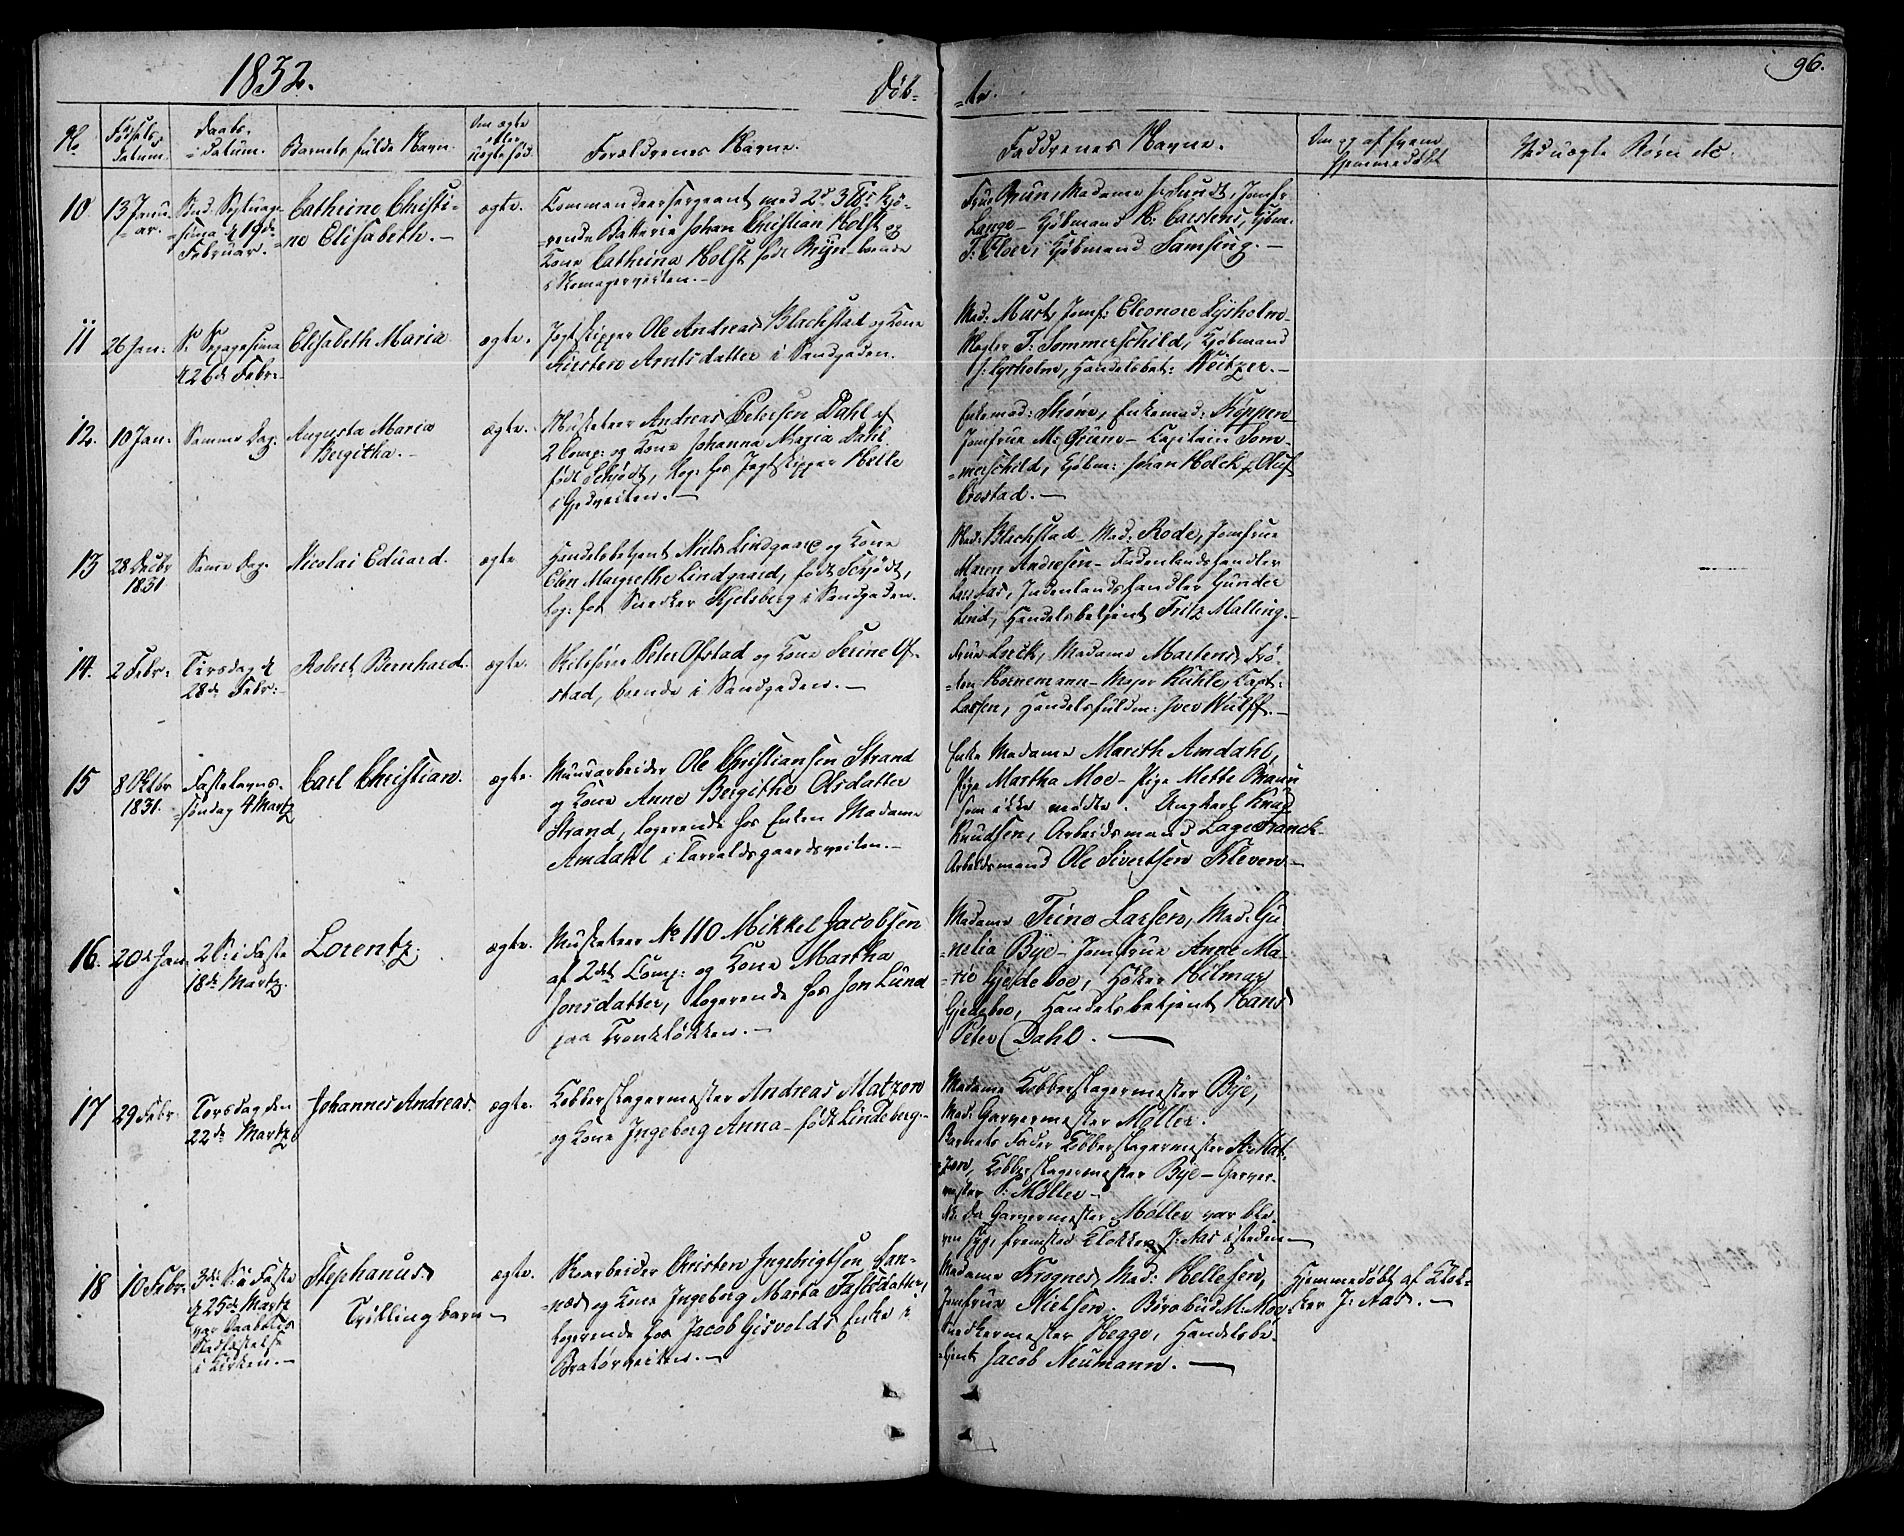 1832.
Døb-
-te.
96.
No
Fødsels-
datum.
Daabs-
datum.
Barnets fulde Navn.
Om ægte
eller
uægte fød.
Forældrenes Navne.
Faddrenes Navne.
Om og af hvem
hjemmedøbt
Ved uægte Børn &c.
10
13 Janu-
ar.
Septuage-
sima d. 19de
Februar.
Cathrine Christi-
ne Elisabeth.
ægte.
Commandeersergeant med 2det 3 ℔s kjø-
rende Batterie Johan Christian Holst og
Kone Cathrina Holst født Bryn boende
i Komagerveiten.
Frue Bruun, Madame Lundt, Jomfr
Lange - Kjøbmand H: Carstens, Kjøbm.
T: Floer, Kjøbmand Samsing.
11
26 Jan:
S: Sexagesima
d. 26de Febr:
Elisabeth Maria
ægte.
Jagtskipper Ole Andreas Blachstad og Kone
Kirsten Arntsdatter i Sandgaden.
Mad: Murst, Jomf: Eleonore Lysholm
Mægler T: Sommerschild, Kjøbmand
J: Lysholm, Handelsbet: Weitzer.
12.
10 Jan:
Samme Dag:
Augusta Maria
Bergitha.
ægte.
Musketeer Andreas Petersen Dahl af
2 Comp: og Kone Johanna Maria Dahl
født Schjødt, log: hos Jagtskipper Helle
i Gjedveiten.
Enkemad: Strøm, Enkemad: Køppen
Jomfrue M: Gram - Capitain Som-
merschild, Kjøbm: Johan Holck, Oluf
Crostad.
13
28 Decbr
1831
Samme Dag.
Nicolai Eduard.
ægte
Handelsbetjent Niels Lindgaard og Kone
Elen Margrethe Lindgaard, født Schjødt,
log: hos Snedker Kjelsberg i Sandgaden.
Mad: Blachstad - Mad: Rode, Jomfrue
Maren Andresen - Indenlandshandler
Lars Aas, Indenlandshandler Gunder
Lind, Handelsbetjent Fritz Malling.
14.
2 Febr:
Tirsdag d.
28de Febr:
Robert Bernhard.
ægte.
Peter Ofstad og Kone Serine Of-
stad, boende i Sandgaden.
Frue Lerck, Madame Martens, Frø-
ken Hornemann - Major Kühle, Capt:
Larsen, Handelsfuldm: Iver Wulff.
15
8 Oktbr
1831.
Fastelavns-
søndag 4 Martz
Carl Christian.
ægte.
Muurarbeider Ole Christiansen Strand
og Kone Anne Bergithe Olsdatter
Strand, logerende hos Enken Madame
Amdahl i Tarraldsgaardsveiten.
Enke Madame Marith Amdahl,
Pige Martha Moe - Pige Mette Braun
som ikke mødte. Ungkarl Knud
Knudsen, Arbeidsmand Lage Franck
Arbeidsmand Ole Sivertsen Kleven
16.
20de Jan
2 S: i Faste
18de Martz.
Lorentz.
ægte.
Musketeer No 110 Mikkel Jacobsen
af 2det Comp: og Kone Martha
Jonsdatter, logerende hos Jon Lund
paa Tronkløkken.
Madame Trine Larsen, Mad: Gu-
nelia Bye - Jomfrue Anne Ma-
rie Gjedeboe, Høker Hilmar
Gjedeboe, Handelsbetjent Hans
Peter Dahl.
17
29 Febr.
Torsdag den
22de Martz
Johannes Andreas.
ægte.
Kobberslagermester Andreas Matzon
og Kone Ingeborg Anna født Lindeberg
Madame Kobberslagermester Bye,
Mad: Garvermester Møller.
Barnets Fader Kobberslagermester A: Mat-
zon, Kobberslagermester Bye - Garver-
mester P: Møller
NB: Da Garvermester Møller var ble-
ven syg, fremstod Klokker J: Aas i stedet
18
10 Febr:
3die S: i Faste
d. 25de Martz
var Daabens
Stadfæstelse
i Kirken.
Stephanus.
Trillingbarn
ægte.
Christen Ingebrigtsen San-
næs og Kone Ingeborg Marta Tastsdatter,
logerende hos Jacob Gisvolds Enke i
Bratørveiten.
Madame Krognes, Mad: Hellesen,
Jomfrue Nielsen. Børsbud M: Moe
Snedkermester Hegge, Handelsbe-
tjent Jacob Neumann.
Hjemmedøbt af Klok-
ker J: Aas.